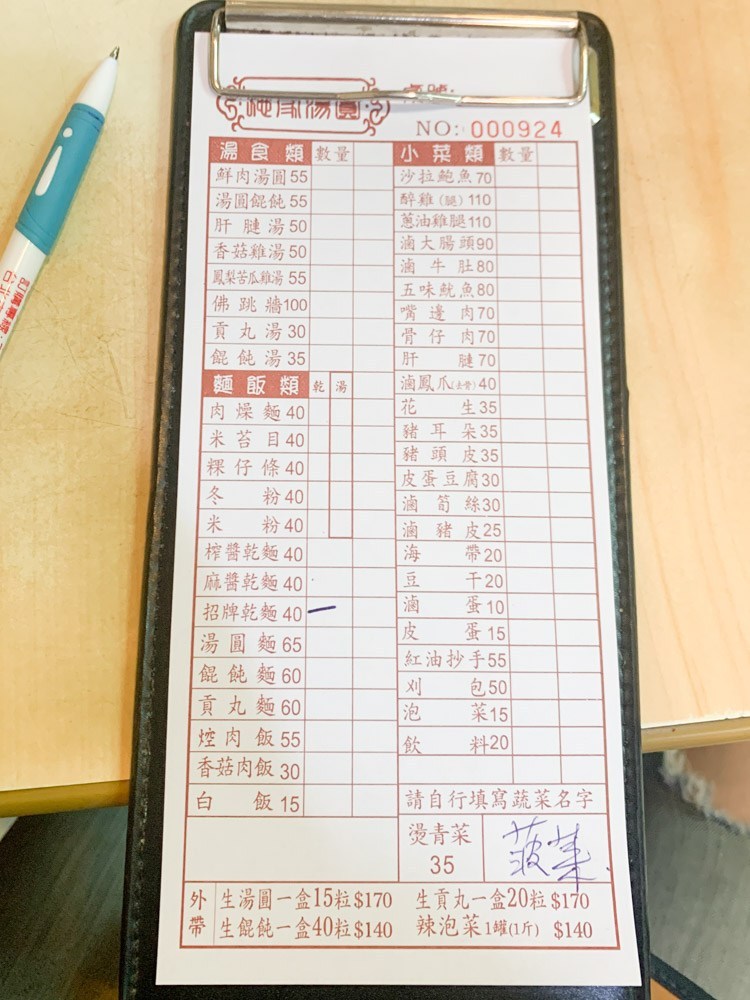 湯圓
NO: 000924
湯食類 數量
鮮肉湯圓 55
湯圓餛飩 55
肝膶湯 50
香菇雞湯 50
鳳梨苦瓜雞湯 55
佛跳牆 100
貢丸湯 30
餛飩湯 35
麵飯類 乾 湯
肉燥麵 40
米苔目 40
粿仔條 40
冬粉 40
米粉 40
榨醬乾麵 40
麻醬乾麵 40
招牌乾麵 40 一
湯圓麵 65
餛飩麵 60
貢丸麵 60
焢肉飯 55
香菇肉飯 30
白飯 15
小菜類 數量
沙拉鮑魚 70
醉雞(腿) 110
蔥油雞腿 110
滷大腸頭 90
滷牛肚 80
五味魷魚 80
嘴邊肉 70
骨仔肉 70
肝膶 70
滷鳳爪(去骨) 40
花生 35
豬耳朵 35
豬頭皮 35
皮蛋豆腐 30
滷筍絲 30
滷豬皮 25
海帶 20
豆干 20
滷蛋 10
皮蛋 15
紅油抄手 55
刈包 50
泡菜 15
飲料 20
請自行填寫蔬菜名字
燙青菜 35 菠菜
外帶
生湯圓一盒15粒$170 生貢丸一盒20粒$170
生餛飩一盒40粒$140 辣泡菜1罐(1斤) $140